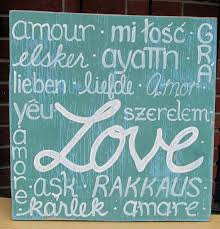 amour · miłość ·
GRA
elsker
lieben · liefde · Amor
yêu szerelem
Love
amore
aşk RAKKAUS
kärlek · amare